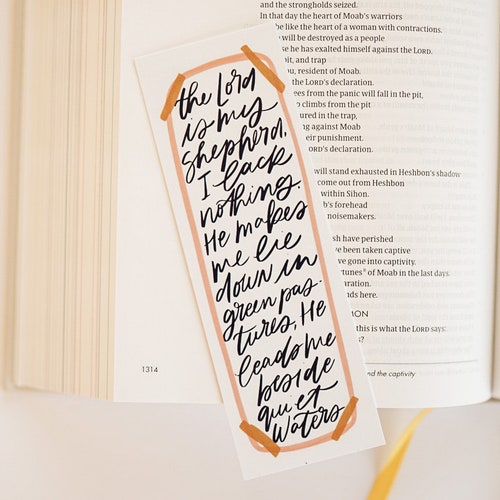 the Lord
is my
shepherd,
I lack
nothing.
He makes
me lie
down in
green pas-
tures, He
leads me
beside
quiet
waters
and the strongholds seized.
In that day the heart of Moab's warriors
be like the heart of a woman with contractions.
will be destroyed as a people
he has exalted himself against the LORD.
pit, and trap
you, resident of Moab.
the LORD's declaration.
from the panic will fall in the pit,
climbs from the pit
in the trap,
against Moab
their punishment.
LORD's declaration.
will stand exhausted in Heshbon's shadow
come out from Heshbon
within Sihon.
forehead
noisemakers.
have perished
been taken captive
gone into captivity.
of Moab in the last days.
ends here.
this is what the LORD says:
1314
and the captivity